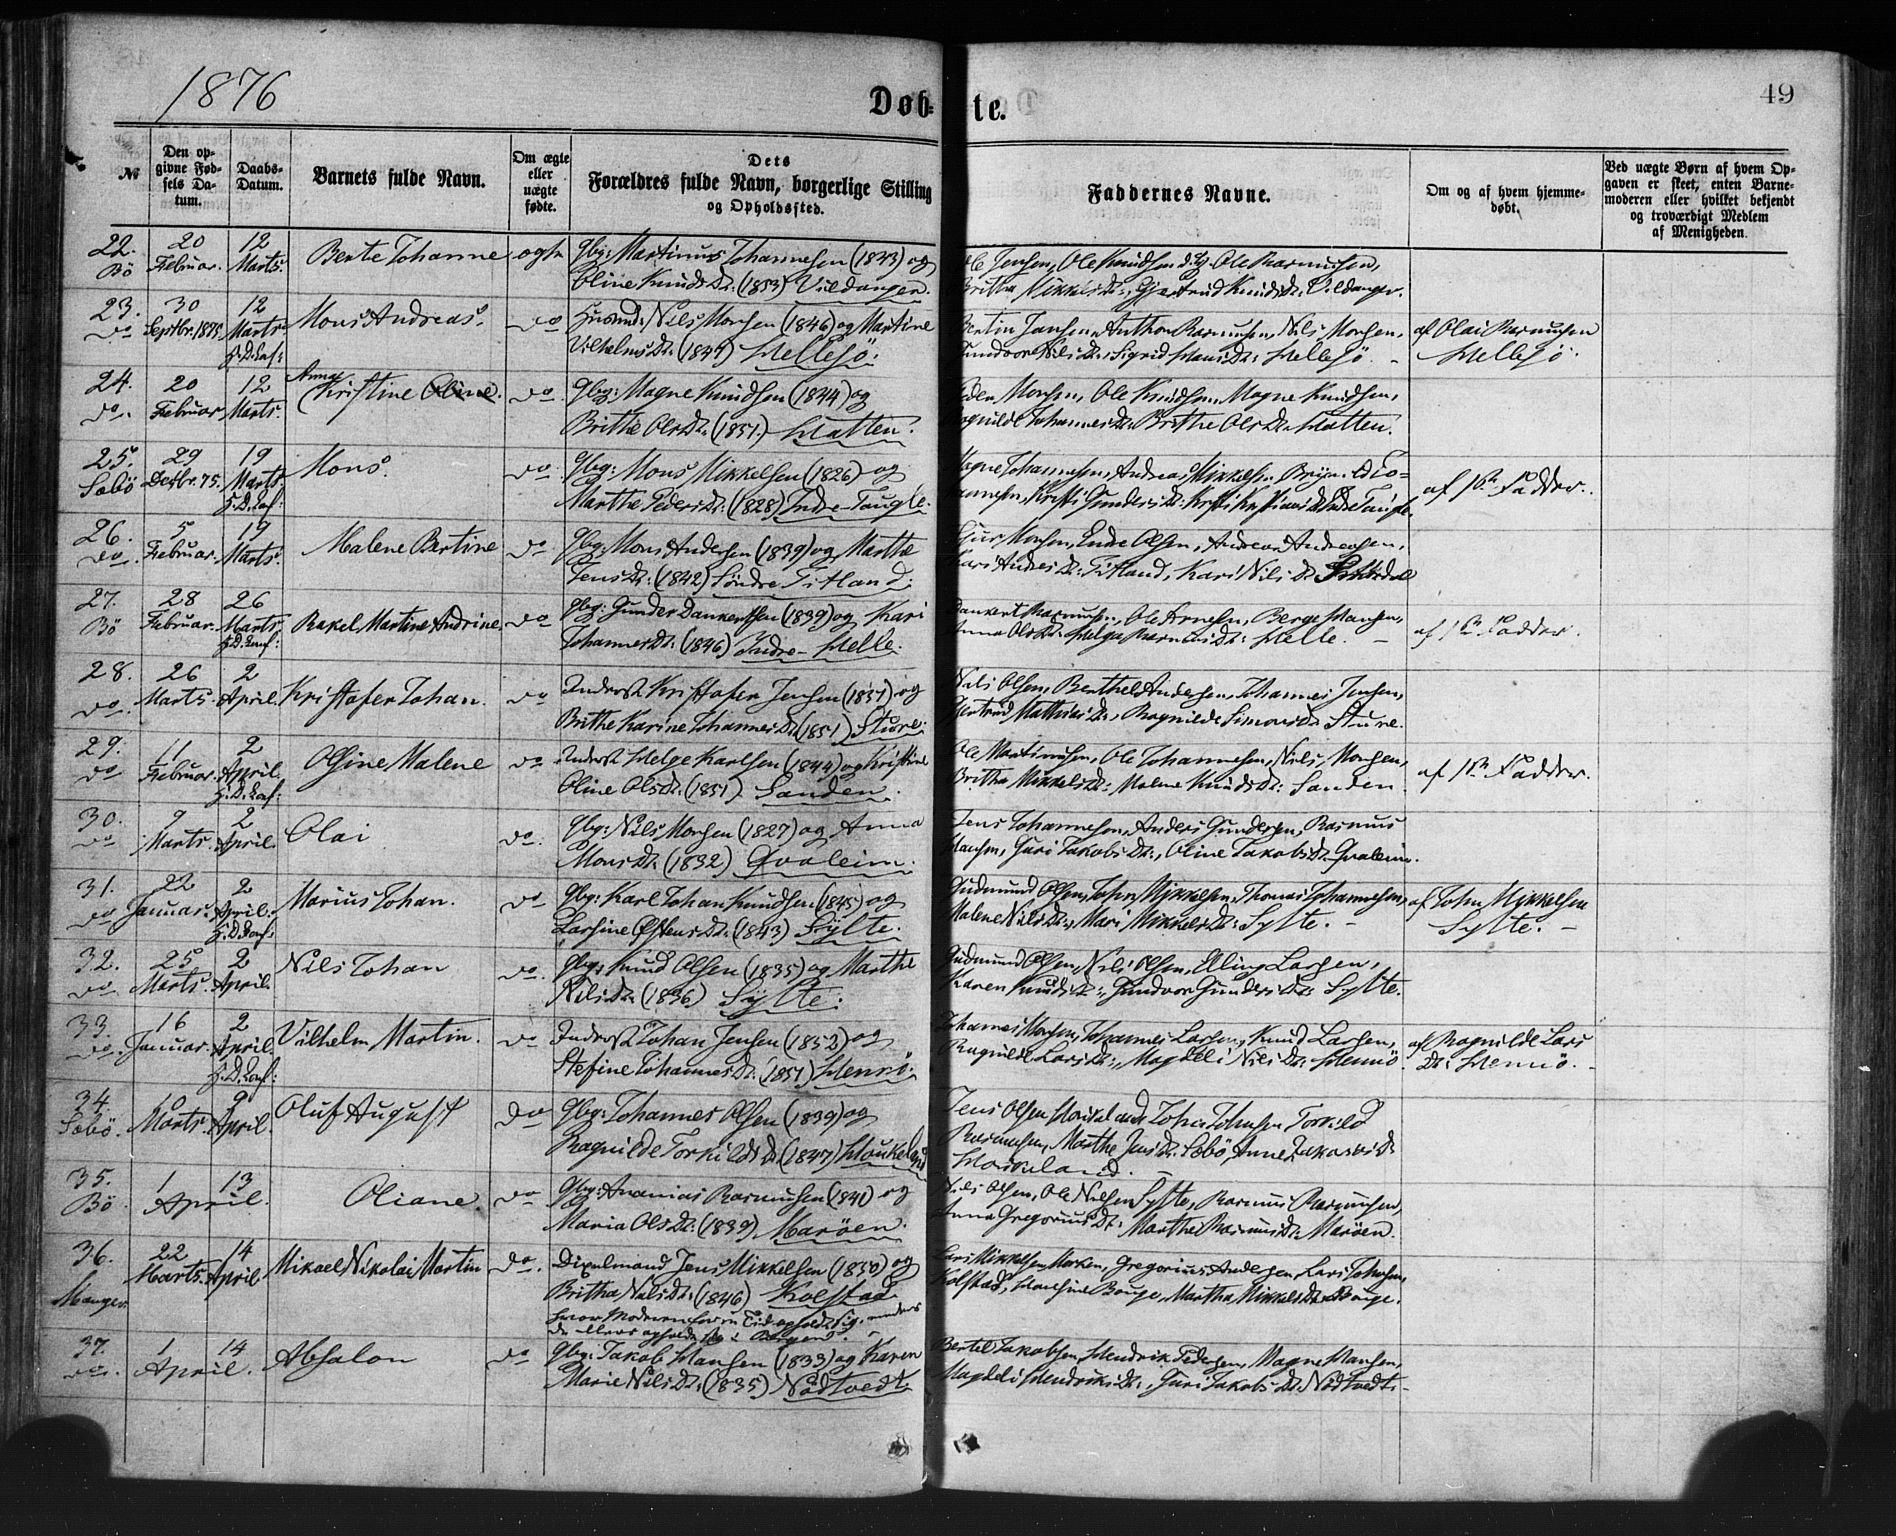 1876
Døb-te.
49
№
Den opgivne Fødsels Datum.
Daabs-Datum.
Barnets fulde Navn.
Om ægte eller uægte fødte.
Dets Forældres fulde Navn, borgerlige Stilling og Opholdssted.
Faddernes Navne.
Om og af hvem hjemmedøbt.
Ved uægte Børn af hvem Opgaven er skeet, enten Barnemoderen eller hvilket bekjendt og troværdigt Medlem af Menigheden.
22. Bö 20 Februar. 12 Marts. Berte Johanne ægte Gbg: Martinus Johannesen (1843) og
Oline Knuds Dr: (1853) Vildanger.
Ole Jensen, Ole Knudsen, Ole Rasmusen,
Britha Mikkels Dr:, Gjertrud Knuds Dr: Vildanger.
23. do 30 Septbr. 1875 12 Marts H.D. Conf: Mons Andreas. do Husmd: Nils Monsen (1846) og Martine
Vilhelms Dr: (1847) Hellesö.
Bertin Jansen, Anthon Rasmusen, Nils Monsen,
Gundvor Nils Dr:, Sigrid Hans Dr: Hellesö.
af Olai Rasmusen
Hellesö.
24. do. 20 Februar 12 Marts. Anna Kristine Oline. do Gbg: Magne Knudsen (1844) og
Brithe Ols Dr: (1851.) Hatten.
Peder Monsen, Ole Knudsen, Magne Knudsen,
Ragnilde Johannes Dr: Brithe Ols Dr: Hatten.
25. Sæbö 29 Decbr. 75. 19 Marts. H.D. Conf: Mons. do Gbg: Mons Mikkelsen (1826) og
Marthe Peders Dr: (1828) Indre-Taugle.
Magne Johannesen, Andreas Mikkelsen,
af 1ste Fadder.
26. do. 5 Februar. 19 Marts. Malene Bertine do Gbg: Mons Andersen (1839) og Marthe
Jens Dr: (1842) Söndre Titland.
Monsen, Endre Olsen, Andreas Andreasen,
Kari Andres Dr: Titland, Kari Nils Dr:
27. Bö 28 Februar. 26 Marts H.D. Conf: Rakel Martine Andrine. do Gbg: Gunder Dankertsen (1839) og Kari
Johannes Dr: (1846) Indre-Helle.
Dankert Rasmusen, Ole Arnesen, Berge Hansen,
Anna Ols Dr: Helga Rasmus Dr: Helle.
af 1ste Fadder.
28. do. 26 Marts. 2 April. Kristofer Johan. do Inderst Kristofer Jensen (1851) og
Brithe Karine Johannes Dr: (1851) Sture.
Nils Olsen, Berthel Andersen, Johannes Jensen,
Gjertrud Mathias Dr:, Ragnilde Simons Dr: Sture.
29. do 1 Februar. 2 April. H.D. Conf: Olsine Malene do Inderst Helge Karlsen (1844) og Kristine
Oline Ols Dr: (1851) Sanden.
Ole Martinusen, Ole Johannesen, Nils Monsen,
Britha Mikkels Dr: Malene Knuds Dr: Sanden.
af 1ste Fadder.
30. do 9 Marts. 2 April. Olai do. Gbg: Nils Monsen (1827) og Anna
Mons Dr: (1832) Qvaleim.
Jens Johannesen, Anders Gundersen, Rasmus
Hansen, Guri Jakobs Dr:, Oline Jakobs Dr: Qvaleim.
31. do 22 Januar. 2 April. H.D. Conf: Marius Johan. do Gbg: Karl Johan Knudsen (1845) og
Larsine Östens Dr: (1843) Sylte.
Gudmund Olsen, John Mikkelsen, Thomas Johannesen,
Malene Nils Dr:, Mari Mikkels Dr: Sylte.
af John Mikkelsen
Sylte.
32. do. 25 Marts. 2 April. Nils Johan do. Gbg: Knud Olsen (1835) og Marthe
Nils Dr: (1836) Sylte.
Gudmund Olsen, Nils Olsen, Elling Larsen,
Karen Knuds Dr:, Gundvor Gunders Dr: Sylte.
33. do. 16 Januar. 2 April. H.D. Conf: Vilhelm Martin. do Inderst Johan Jensen (1852) og
Stefine Johannes Dr: (1851) Hennö.
Johannes Monsen, Johannes Larsen, Knud Larsen,
Ragnilde Lars Dr:, Magdeli Nils Dr: Hennö.
af Ragnilde Lars
Dr: Hennö.
34. Sæbö. 10 Marts. 9 April. Oluf August do Gbg: Johannes Olsen (1839) og
Ragnilde Torkilds Dr: (1847) Houkeland
Jens Olsen Houkeland, Johan Johnsen, Torkild
Rasmusen, Marthe Jens Dr: Sæbö, Anne Jakobs Dr:
Houkeland.
35. Bö 1 April 13 April. Oliane. do Gbg: Ananias Rasmusen (1841) og
Maria Ols Dr: (1839) Maröen.
Nils Olsen, Ole Nilsen Sylte, Rasmus Rasmusen,
Anna Gregorius Dr: Marthe Rasmus Dr: Maröen.
36. Manger 22 Marts. 14 April Mikael Nikolai Martin do. Dixelmand Jens Mikkelsen (1850) og
Britha Nils Dr: (1846) Kolstad
hvor Moderen for en Tid opholdt sig, anders
de ellers opholde sig i Bergen.
Lars Mikkelsen Morken, Gregorius Andersen, Lars Johnsen
Kolstad, Hansine Bonge, Martha Mikkels Dr: Bonge.
37. do. 1 April. 14 Absalon do Gbg: Jakob Hansen (1833) og Karen
Marie Nils Dr: (1835) Nödtvedt
Bertel Jakobsen, Hendrik Pedersen, Magne Hansen,
Magdeli Hendriks Dr:, Guri Jakobs Dr: Nödtvedt.